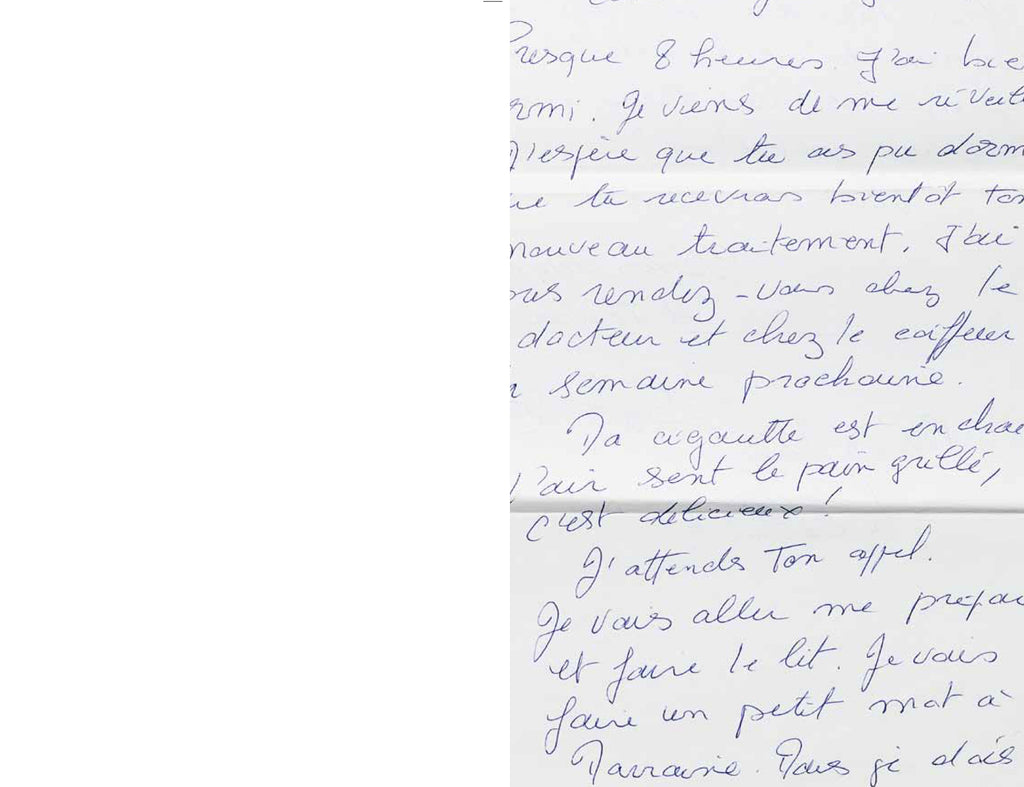 Presque 8 heures. J'ai bie
rmi. Je viens de me réveill
J'espère que tu as pu dorm
ue tu recevras bientôt ton
nouveau traitement. J'ai
rendez-vous chez le
docteur et chez le coiffeur
semaine prochaine.
Ta cigarette est en chac
l'air sent le pain grillé,
c'est délicieux !
J'attends ton appel.
Je vais aller me prépar
et faire le lit. Je vais
faire un petit mot à
Marraine. Mais je dois